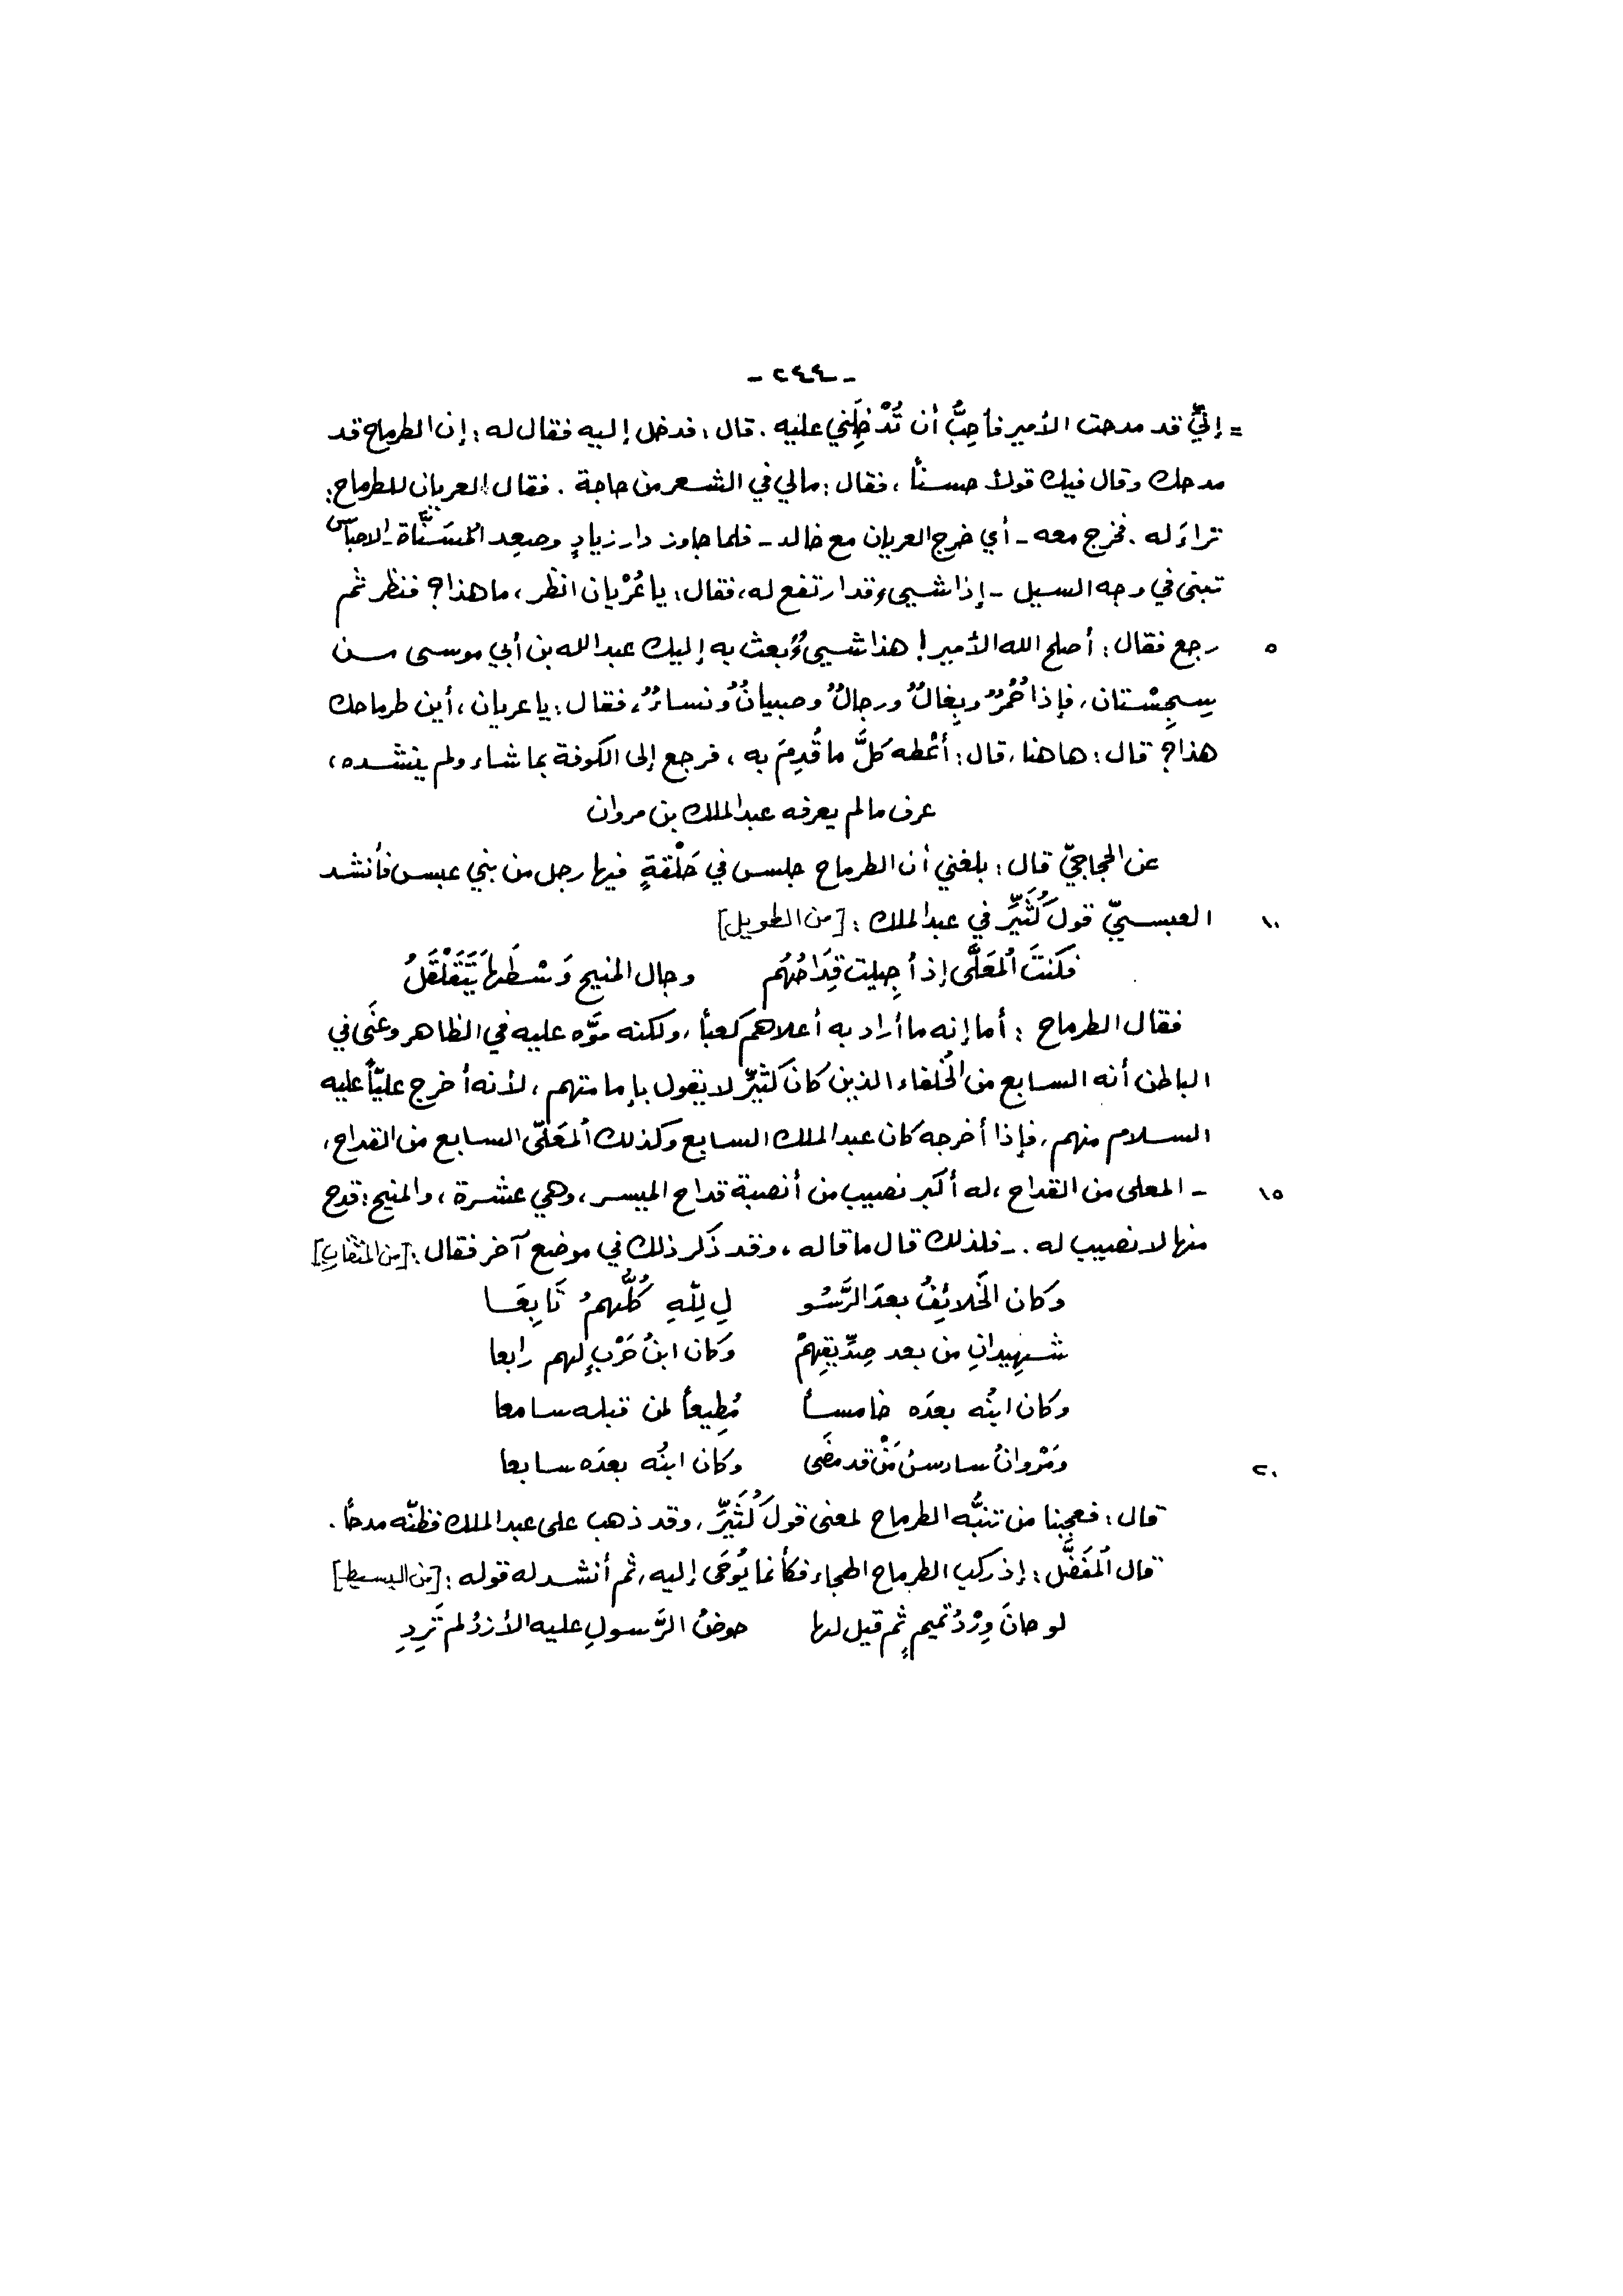 - ٢٤٤ -
= إنِّيْ قد مدحت الأمير فأحِبُّ أن تُدْخِلَني عليه . قال : فدخل إليه فقال له : إن الطرماح قد
مدحك وقال فيك قولاً حسناً ، فقال : مالي في الشعر من حاجة . فقال العريان للطرماح :
تراءَ له . فخرج معه - أي خرج العريان مع خالد - فلما جاوز دار زيادٍ وصعِد المُسَنَّاة - الاحباس
تبنى في وجه السيل - إذا شيىء قد ارتفع له ، فقال : يا عُرْيان انظر ، ما هذا ؟ فنظر ثم
٥ رجع فقال : أصلح الله الأمير ! هذا شيىءٌ بعث به إليك عبد الله بن أبي موسى من
سِجِسْتان ، فإذا حُمُرٌ وبِغالٌ ورجالٌ وصبيانٌ ونساءٌ ، فقال : يا عريان ، أين طرماحك
هذا ؟ قال : هاهنا ، قال : أعْطه كلَّ ما قُدِمَ به ، فرجع إلى الكوفة بما شاء ولم ينشده ،
عرف مالم يعرفه عبد الملك بن مروان
عن الحجاجيّ قال : بلغني أن الطرماح جلس في حَلْقةٍ فيها رجل من بني عبس فأنشد
١٠ العبسيّ قولَ كُثَيِّر في عبد الملك : [من الطويل]
فكنتَ اُلمَعَلَّى إذ أُجِيلت قِدَاحُهُم وجال المنيح وَسْطَها يَتَقَلْقَلُ
فقال الطرماح : أما إنه ما أراد به أعلاهم كعباً ، ولكنه موَّه عليه في الظاهر وعَنَى في
الباطن أنه السابع من الخُلفاء الذين كان كثيِّر لا يقول بإمامتهم ، لأنه أخرج عليّاً عليه
السلام منهم ، فإذا أخرجه كان عبد الملك السابع وكذلك اُلمعَلّى السابع من القداح ،
١٥ - المعلى من القداح ، له أكبر نصيب من أنصبة قداح الميسر ، وهي عشرة ، والمنيح : قدح
منها لا نصيب له . - فلذلك قال ما قاله ، وقد ذَكر ذلك في موضع آخر فقال : [من المتقارب]
وكان الخَلائِفُ بعدَ الرَّسُو لِ لِلّهِ كُلُّهمُ تَابِعَا
شهِيدانِ من بعد صِدِّيقِهِمْ وكان ابنُ حَرْبٍ لهم رابعا
وكان ابنُه بعدَه خامساً مُطِيعاً لمن قبله سامعا
٢٠ ومَرْوانُ سادسُ مَنْ قد مضَى وكان ابنُه بعدَه سابعا
قال : فعجِبنا من تنبُّه الطرماح لمعنى قول كُثَيِّر ، وقد ذهب على عبد الملك فظنّه مدحاً .
قال اُلمفَضَّل : إذ ركب الطرماح الهجاء فكأنما يُوحَى إليه ، ثم أنشد له قوله : [من البسيط]
لو حانَ وِرْدُ تميمٍ ثم قيل لها حوضُ الرَّسولِ عليه الأزدُ لم تَرِدِ